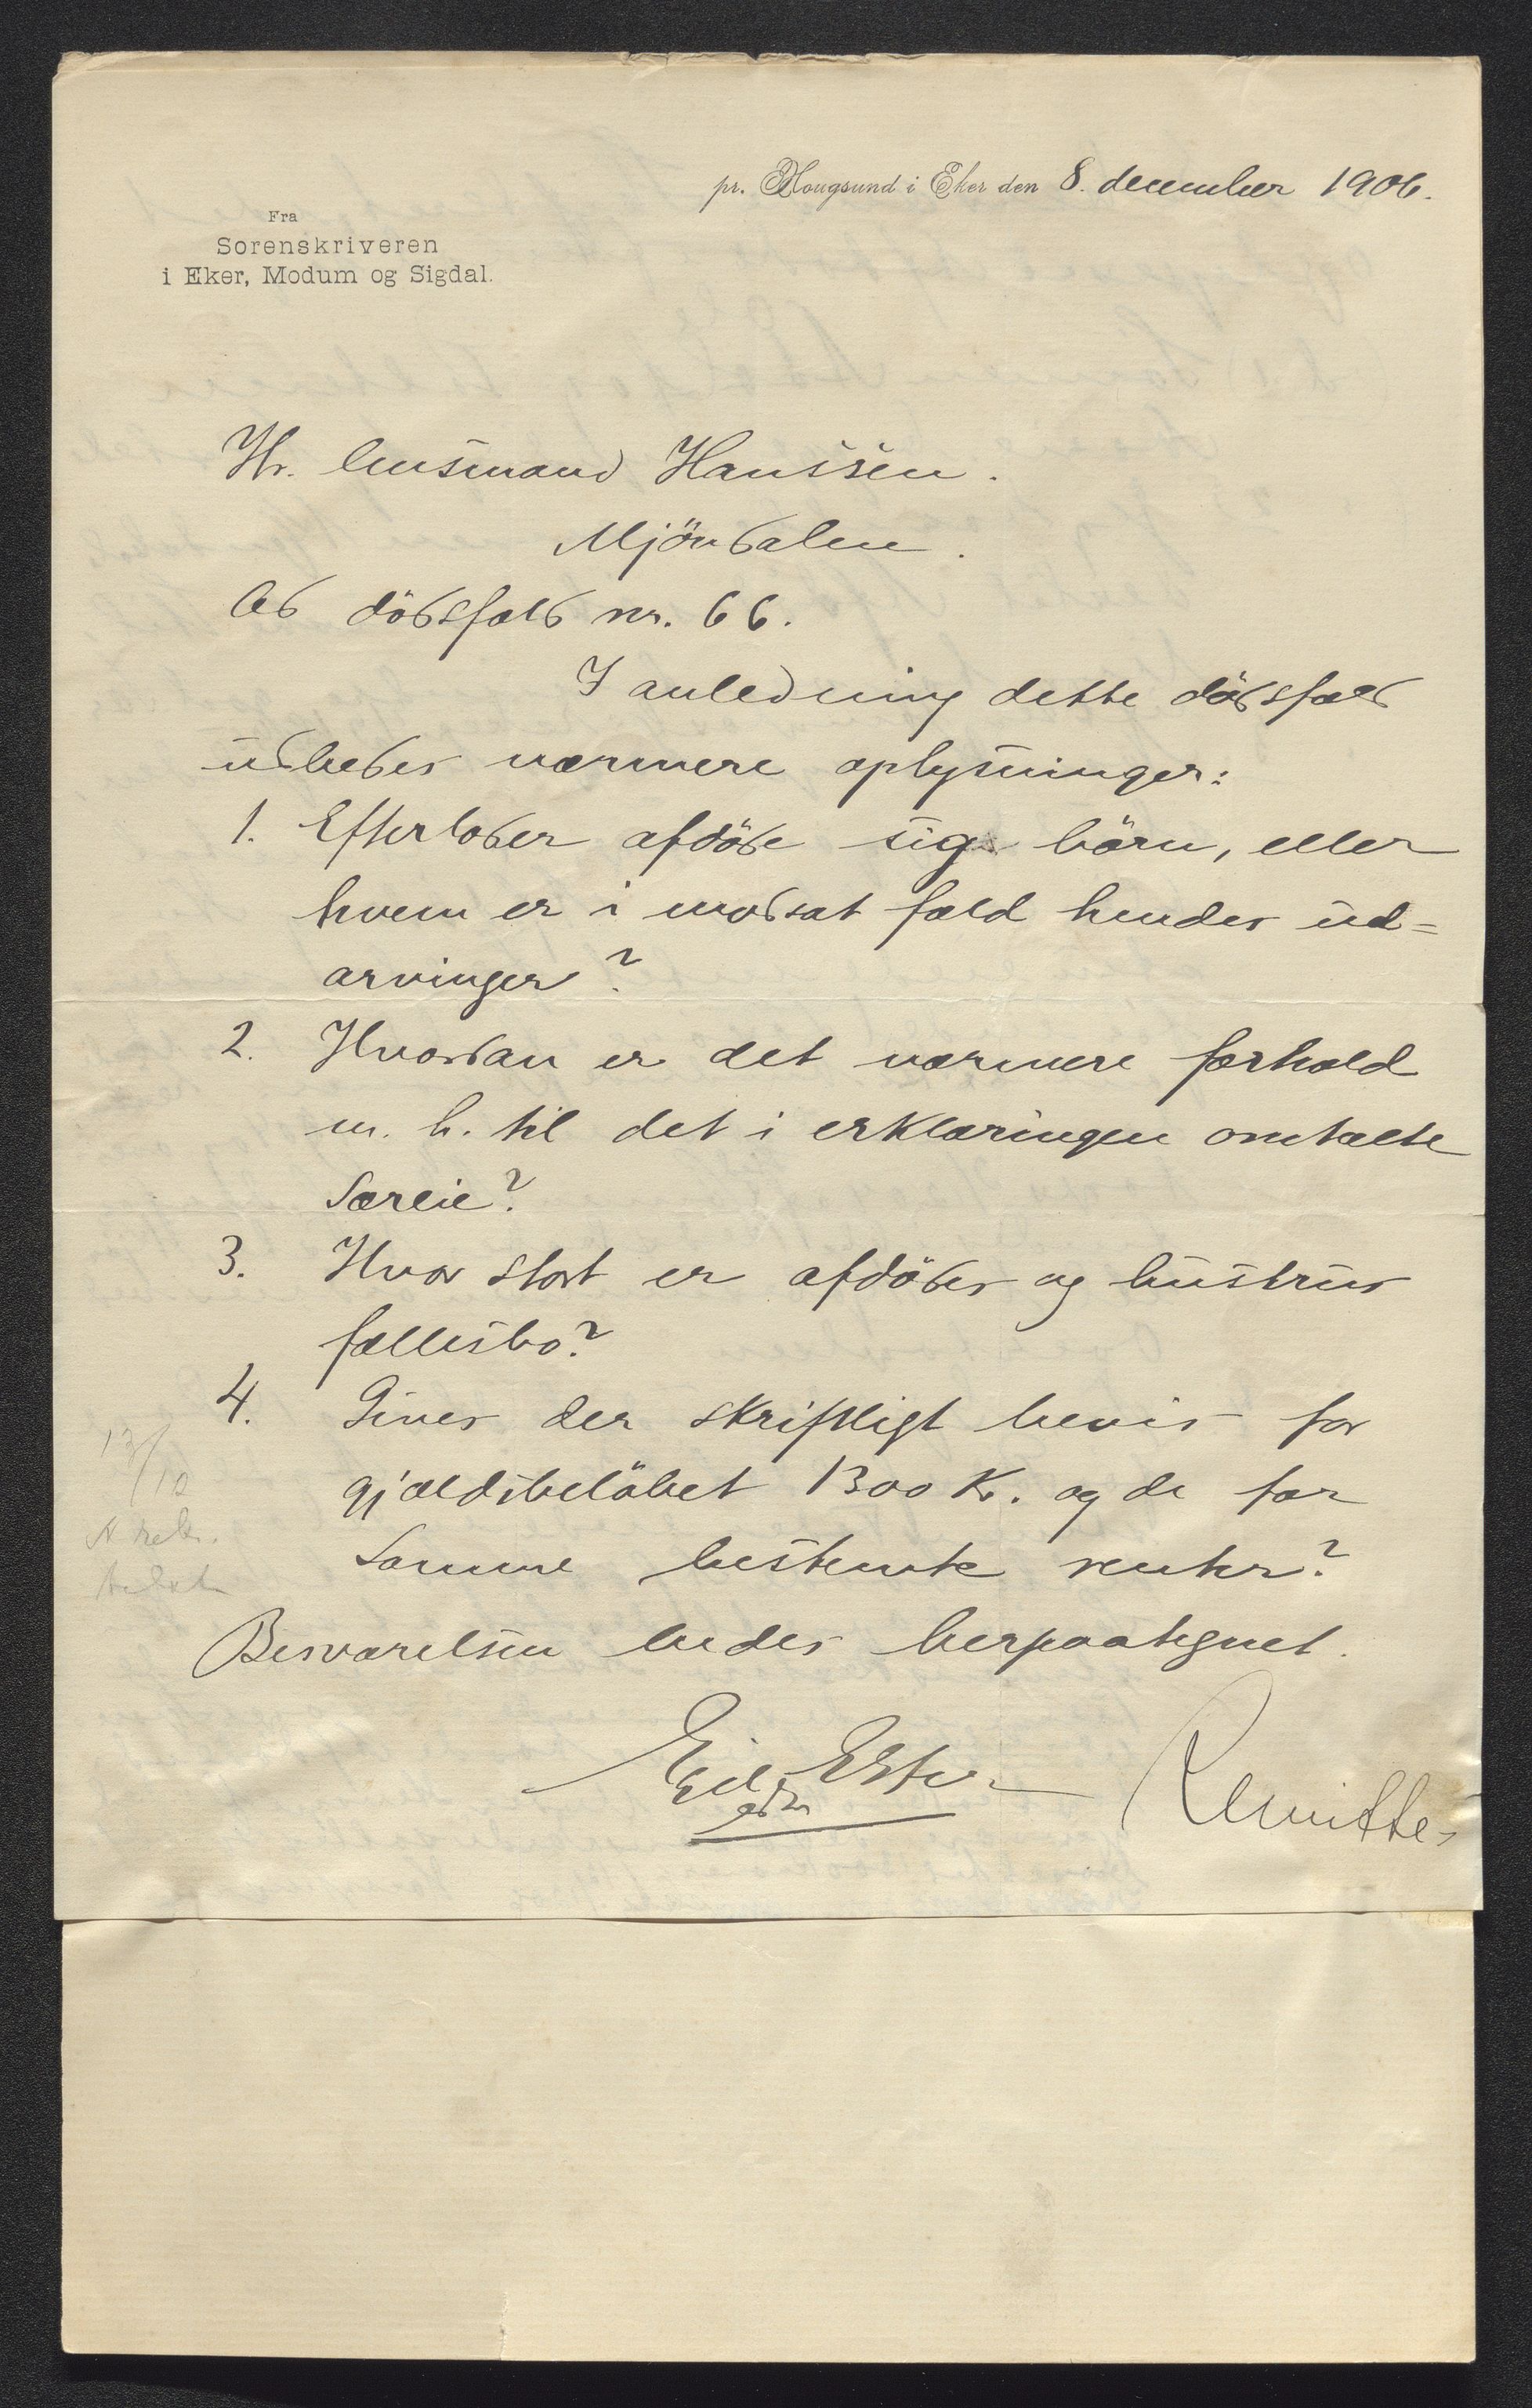 pr. Hougsund i Eker den 8. december 1906.
Fra
Sorenskriveren
i Eker, Modum og Sigdal.
Hr. lensmand Hanssen.
Mjöndalen.
Ad dödsfald nr. 66.
I anledning dette dödsfald
udbedes nærmere oplysninger:
1. Efterlader afdöde sig börn, eller
hvem er i modsat fald hendes ud=
arvinger?
2. Hvordan er det nærmere forhold
m. h. til det i erklæringen omtalte
særeie?
3. Hvor stort er afdödes og hustrus
fællesbo?
4. Gives der skriftligt bevis for
gjældsbelöbet 1300 Kr. og de for
samme bestemte renter?
13/10
Besvarelsen bedes herpaategnet.